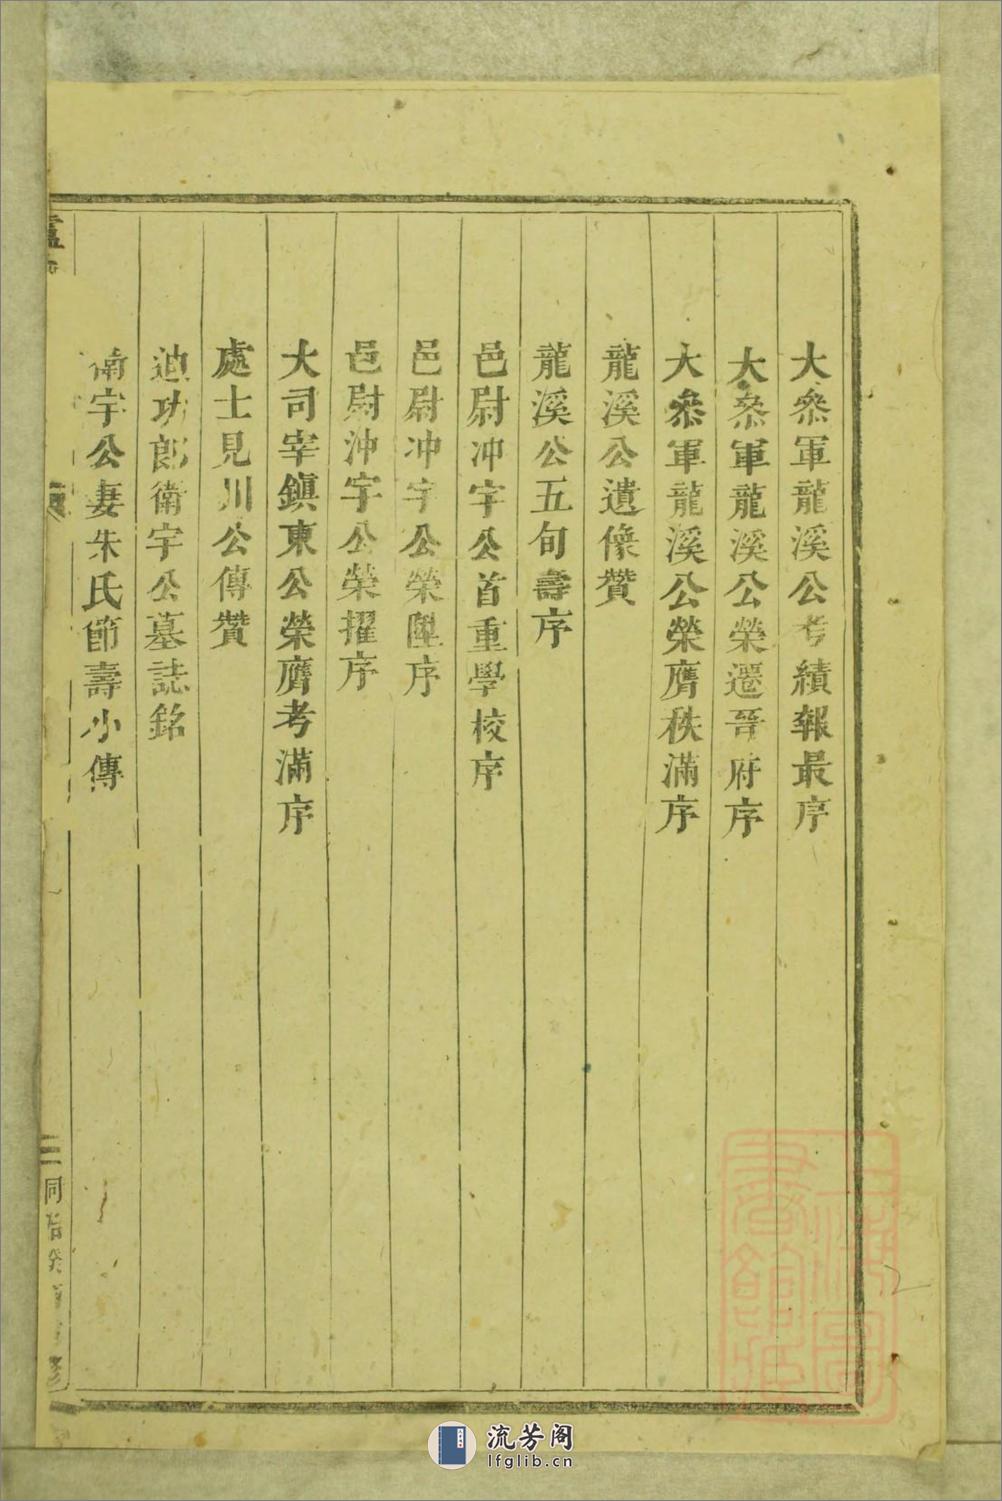 大叅軍龍溪公考績報最序
大叅軍龍溪公榮遷晉府序
大叅軍龍溪公榮膺秩滿序
龍溪公遺像贊
龍溪公五旬壽序
邑尉冲宇公首重學校序
邑尉冲宇公榮陞序
邑尉沖宇公榮擢序
大司宰鎮東公榮膺考滿序
處士見川公傳贊
迪功郎衛宇公墓誌銘
衛宇公妻朱氏節壽小傳
三
同治癸
修
上海圖書館藏
2
流芳阁
lfglib.cn